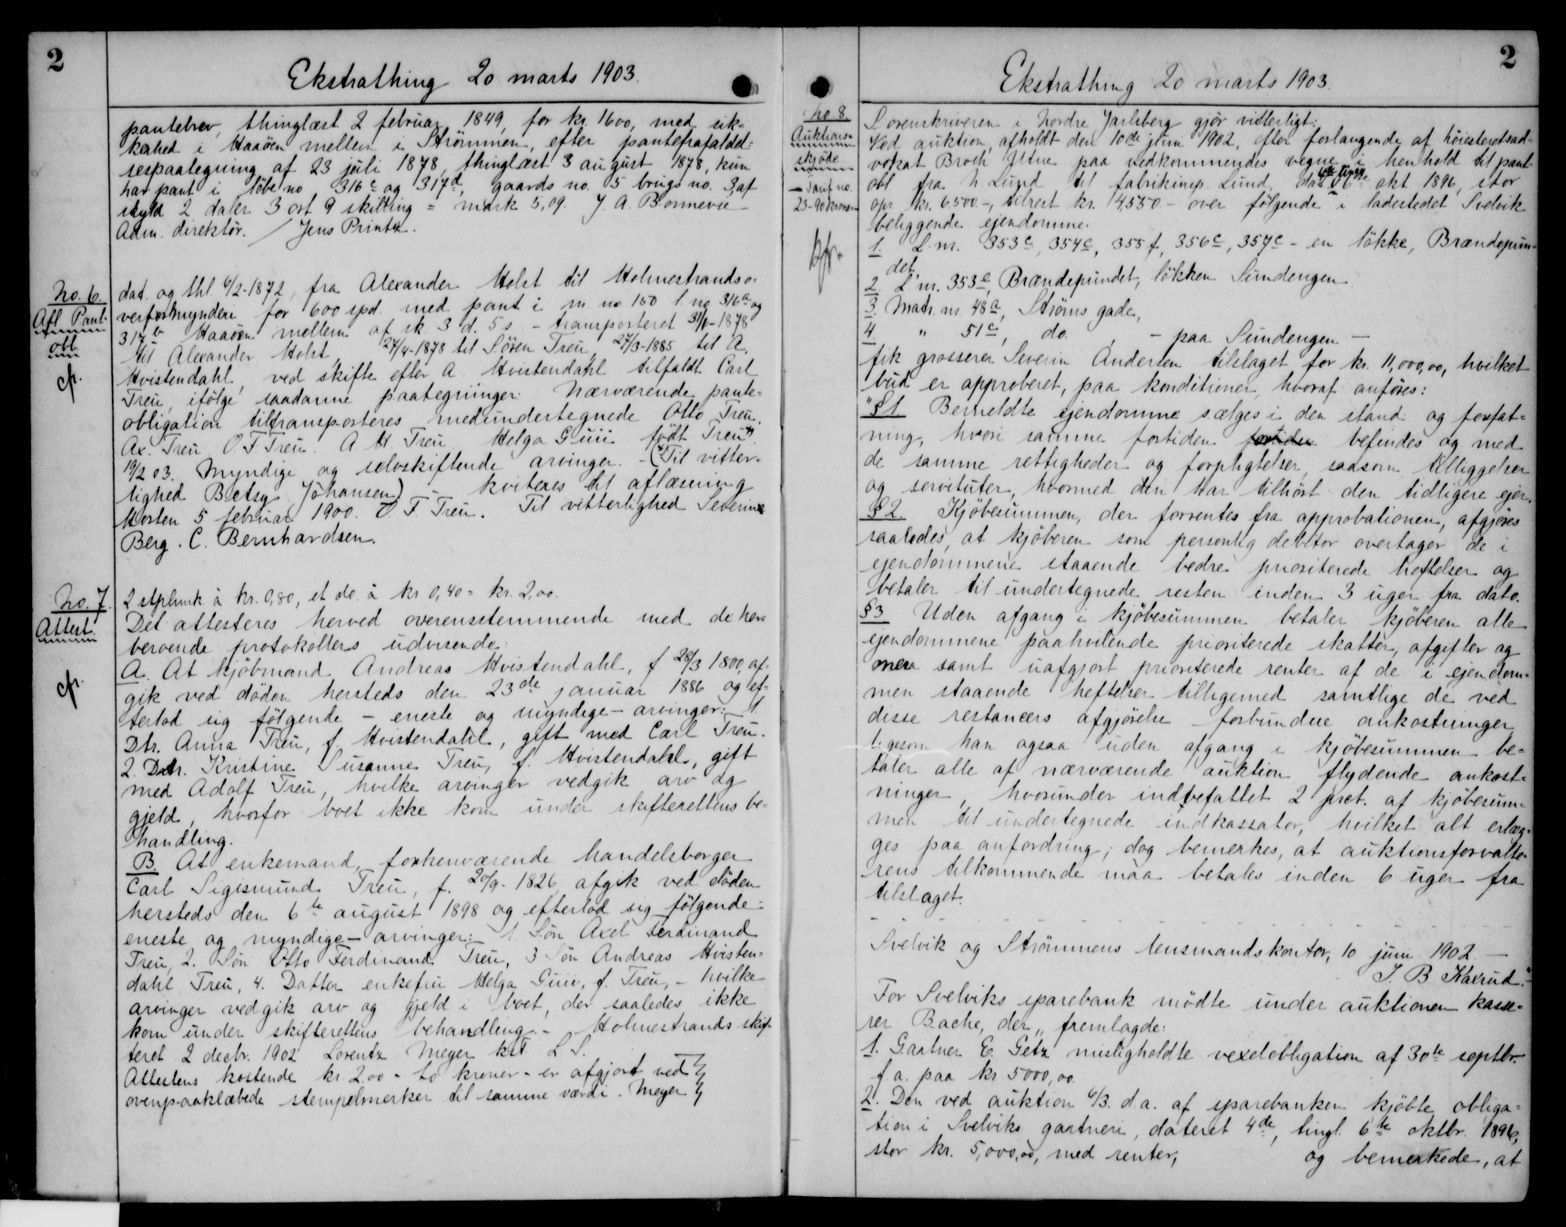 2
Ekstrathing 20 marts 1903.
pantebrev, thinglæst 2 februar 1849, for kr. 1600, med sik-
kerhed i Haaöen mellem i Strömmen, efter pantefrafaldel-
sespaategning af 23 juli 1878, thinglæst 3 august 1878, kun
har pant i löbe no 316c og 317d, gaards no. 5 brugs no. 3 af
skyld 2 daler 3 ort 9 skilling = mark 5,09 J. A. Bonnevie
Adm. direktör. / Jens Printz.
No. 6.
Afl. Pant.
obl.
cfr.
dat. og thl 6/2-1872, fra Alexander Holst til Holmestrands o-
verformynderi for 600 spd. med pant i m no 150 l. no 316a og
317b Haaöen mellem af sk. 3 d. 5 s. - transporteret 31/1-1878
til Alexander Holst, 27/4-1878 til Sören Treu, 27/3-1885 til A.
Hvistendahl, ved skifte efter A. Hvistendahl tilfaldt Carl
Treu, ifölge saadanne paategninger: Nærværende pante-
obligation tiltransporteres medundertegnede Otto Treu.
Ax. Treu O. F. Treu. A H Treu Helga Giiii födt Treu".
19/2 03. Myndige og selvskiftende arvinger. - (Til vitter-
lighed Betsy Johansen) - kviteres til aflæsning
Horten 5 februar 1900. O F Treu. Til vitterlighed Severine
Berg. C. Bernhardsen.
No. 7.
Attest.
cfr.
2 stplmrk à kr. 0,80, et do. à kr 0,40 = kr. 2,00.
Det attesteres herved overensstemmende med de her-
beroende protokollers udvisende:
A. At kjöbmand Andreas Hvistendahl, f 28/3 1800, af-
gik ved döden hersteds den 23de januar 1886 og ef-
terlod sig fölgende - eneste og myndige - arvinger: 1
Dtr. Anna Treu, f. Hvistendahl, gift med Carl Treu.
2. Dtr. Kristine Susanne Treu, f. Hvistendahl, gift
med Adolf Treu, hvilke arvinger vedgik arv og
gjeld, hvorfor boet ikke kom under skifterettens be-
handling.
B. At enkemand, forhenværende handelsborger
Carl Sigismund Treu, f. 27/9-1826, afgik ved döden
hersteds den 6te august 1898 og efterlod sig fölgende -
eneste og myndige - arvinger: 1 Sön Axel Ferdinand
Treu, 2. Sön Otto Ferdinand Treu, 3 Sön Andreas Hvisten-
dahl Treu, 4. Datter enkefru Helga Giiii, f. Treu, - hvilke
arvinger vedgik arv og gjeld i boet, der saaledes ikke
kom under skifterettens behandling. - Holmestrands skif-
teret 2 decbr. 1902 Lorentz Meyer kst L S.
Attestens kostende kr 2,00 - to kroner - er afgjort ved
ovenpaaklæbede stempelmerker til samme værdi. Meyer
2
Ekstrathing 20 marts 1903.
No 8.
Auktions-
skjöde
cfr.
Sorenskriveren i Nordre Jarlsberg gjör vitterligt:
Ved auktion, afholdt den 10de juni 1902, efter forlangende af höiesteretsad-
vokat Broch Utne paa vedkommendes vegne i henhold til pant-
obl fra N. Lund til fabrikinsp. Lund, dat. okt 1896, stor
opr. kr. 6500 -, tilrest kr. 4,550 - over fölgende i ladestedet Svelvik
beliggende ejendomme:
1. L.nr. 353c, 354c, 355f, 356c, 357c - en lökke, Brændepun-
det,
2 L nr. 353a, Brændepundet, lökken Sundengen
3. Matr. nr. 48a, Ströms gade,
4. " 51c, do. - paa Sundengen -
fik grosserer Severin Andersen tilslaget for kr. 11,000,00, hvilket
bud er approberet, paa konditioner, hvoraf anföres:
"§1 Bemeldte ejendomme sælges i den stand og forfat-
ning, hvori samme fortiden befindes og med
de samme rettigheder og forpligtelser, saasom tilliggelser
og servituter, hvormed den har tilhört den tidligere ejer.
§ 2 Kjöbesummen, der forrentes fra approbationen, afgjöres
saaledes, at kjöberen som personlig debitor overtager de i
ejendommene staaende bedre prioriterede heftelser og
betaler til undertegnede resten inden 3 uger fra dato.
§3 Uden afgang i kjöbesummen betaler kjöberen alle
ejendommene paahvilende prioriterede skatter, afgifter og
onera samt uafgjort prioriterede renter af de i ejendom-
men staaende heftelser tilligemed samtlige de ved
disse restancers afgjörelse forbundne omkostninger
ligesom han ogsaa uden afgang i kjöbesummen be-
taler alle af nærværende auktion flydende omkost-
ninger, hvorunder indbefattet 2 prct. af kjöbesum-
men til undertegnede indkassator, hvilket alt erlæg-
ges paa anfordring; dog bemerkes, at auktionsforvalte-
rens tilkommende maa betales inden 6 uger fra
tilslaget.
Svelvik og Strömmens lensmandskontor, 10 juni 1902 -
J B Kaxrud."
For Svelviks sparebank mödte under auktionen kasse-
rer Bache, der "fremlagde:
1. Gartner E. Getz misligholdte vexelobligation af 30te septbr.
f a. paa kr 5000,00.
2. Den ved auktion 6/3. d.a. af sparebanken kjöbte obliga-
tion i Svelviks gartneri, dateret 4de, tingl. 6te oktbr. 1896,
stor kr. 5,000,00, med renter, og bemerkede, at